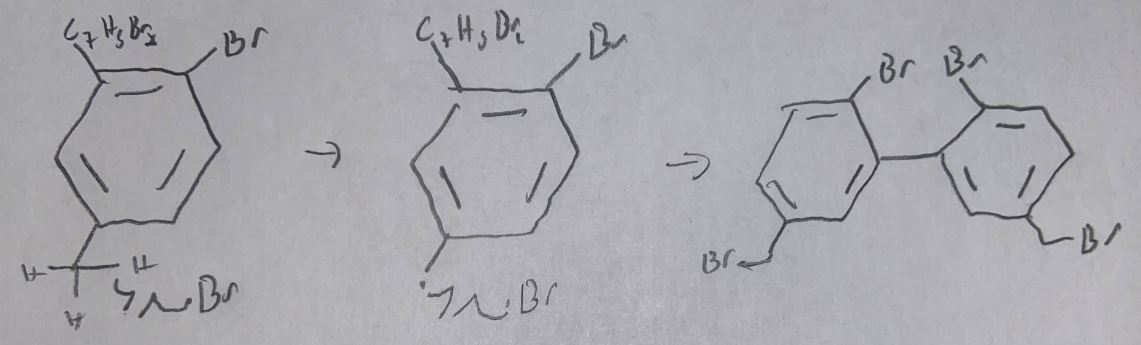 C7H5Br2 Br
H H
H
Br
→
C7H5Br2 Br
Br
→
Br Br
Br Br